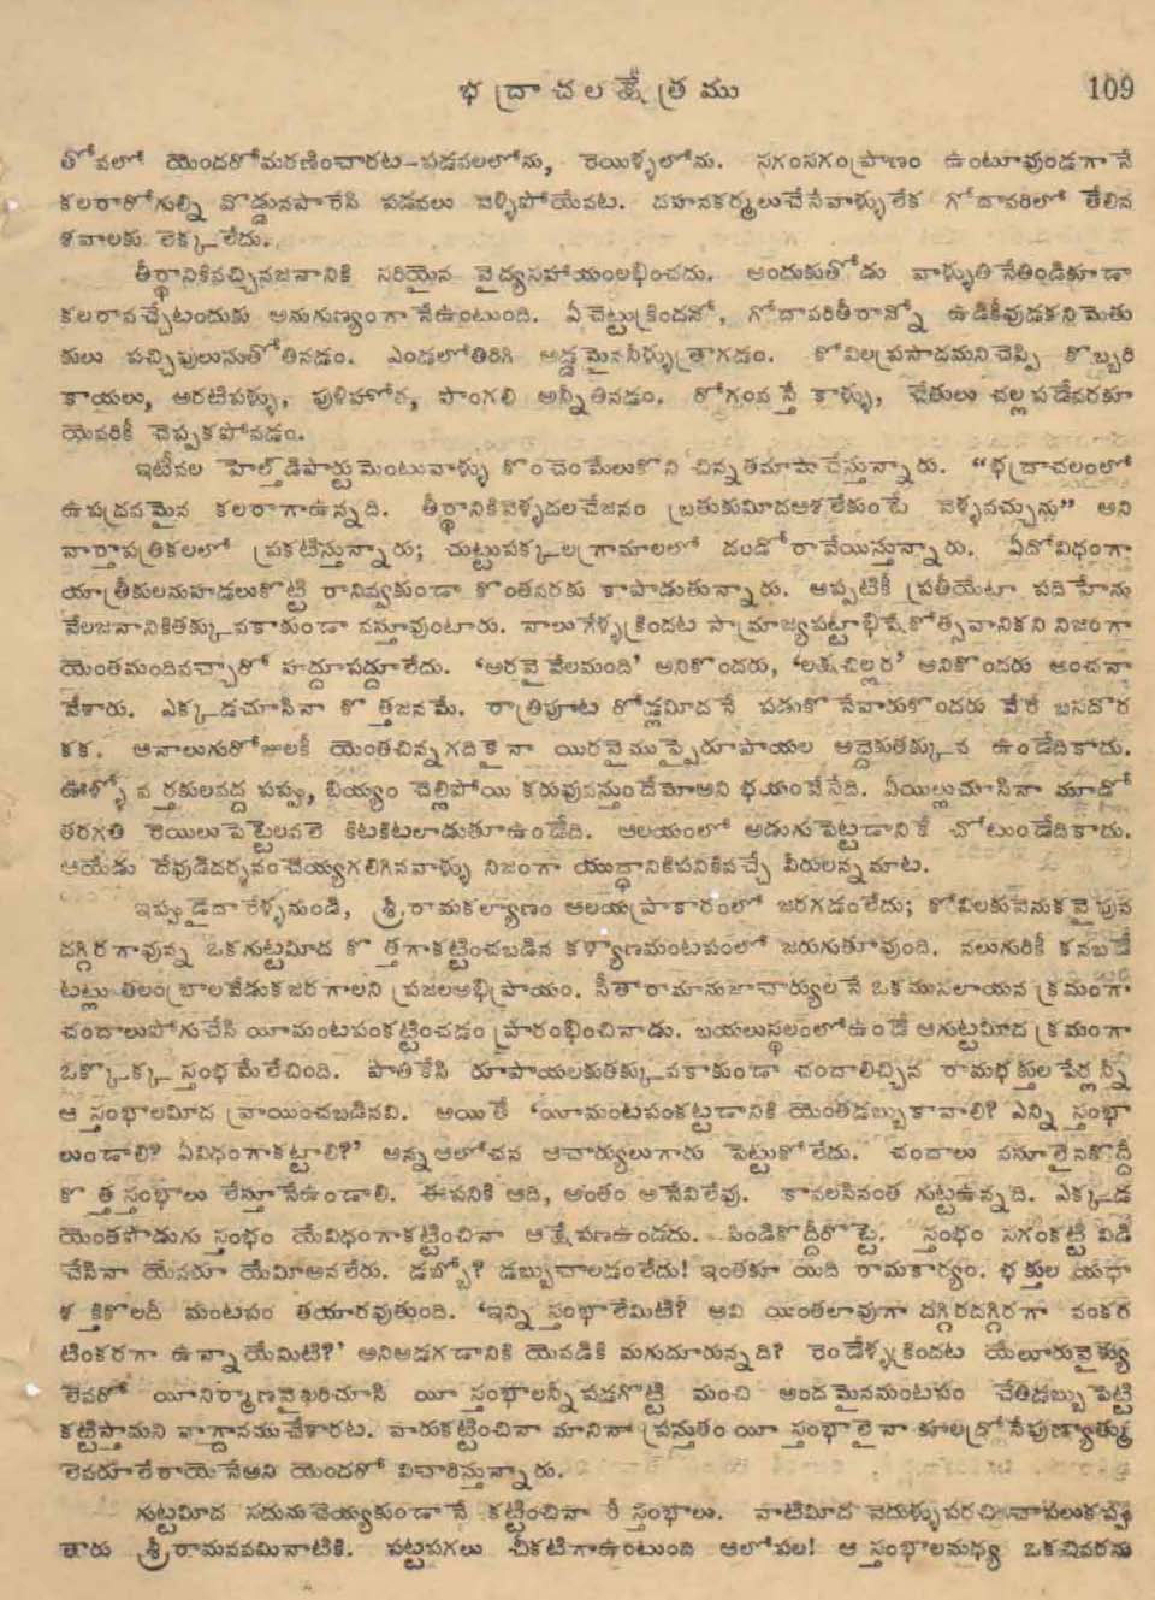 భద్రాచలక్షేత్రము 109
తోవలో యెందరోమరణించారట–పడవలలోను, రెయిళ్ళలోను. సగంసగంప్రాణం ఉంటూవుండగానే
కలరారోగుల్ని వొడ్డునపారేసి పడవలు వెళ్ళిపోయేవట. దహనకర్మలుచేసేవాళ్ళులేక గోదావరిలో తేలిన
శవాలకు లెక్కలేదు.
తీర్థానికివచ్చినజనానికి సరియైన వైద్యసహాయంలభించదు. అందుకుతోడు వాళ్ళుతినేతిండికూడా
కలరావచ్చేటందుకు అనుగుణ్యంగానేఉంటుంది. ఏచెట్టుక్రిందనో, గోదావరితీరాన్నో ఉడికీవుడకనిమెతు
కులు పచ్చిపులుసుతోతినడం. ఎండలోతిరిగి అడ్డమైననీళ్ళుత్రాగడం. కోవిలప్రసాదమనిచెప్పి కొబ్బరి
కాయలు, అరటిపళ్ళు, పులిహోర, పొంగలి అన్నీతినడం. రోగంవస్తే కాళ్ళు, చేతులు చల్లపడేవరకూ
యెవరికీ చెప్పకపోవడం.
ఇటీవల హెల్త్‌డిపార్టుమెంటువాళ్ళు కొంచెంమేలుకొని చిన్నతమాషాచేస్తున్నారు. “భద్రాచలంలో
ఉపద్రవమైన కలరాగాఉన్నది. తీర్థానికివెళ్ళదలచేజనం బ్రతుకుమీదఆశలేకుంటే వెళ్ళవచ్చును” అని
వార్తాపత్రికలలో ప్రకటిస్తున్నారు; చుట్టుపక్కలగ్రామాలలో దండోరావేయిస్తున్నారు. ఏదోవిధంగా
యాత్రీకులనుహడలుకొట్టి రానివ్వకుండా కొంతవరకు కాపాడుతున్నారు. అప్పటికీ ప్రతీయేటా పదిహేను
వేలజనానికితక్కువకాకుండా వస్తూవుంటారు. నాలుగేళ్ళక్రిందట సామ్రాజ్యపట్టాభిషేకోత్సవానికని నిజంగా
యెంతమందివచ్చారో హద్దూపద్దూలేదు. ‘అరవైవేలమంది’ అనికొందరు, ‘లక్షచిల్లర’ అనికొందరు అంచనా
వేశారు. ఎక్కడచూసినా కొత్తజనమే. రాత్రిపూట రోడ్లమీదనే పడుకొనేవారుకొందరు వేరే బసదొర
కక. ఆనాలుగురోజులకీ యెంతచిన్నగదికైనా యిరవైముప్ఫైరూపాయల అద్దెకుతక్కువ ఉండేదికాదు.
ఊళ్ళో వర్తకులవద్ద పప్పు, బియ్యం చెల్లిపోయి కరువువస్తుందేమోఅని భయంవేసేది. ఏయిల్లుచూసినా మూడో
తరగతి రెయిలుపెట్టెలవలె కిటకిటలాడుతూఉండేది. ఆలయంలో అడుగుపెట్టడానికే చోటుండేదికాదు.
ఆయేడు దేవుడిదర్శనంచెయ్యగలిగినవాళ్ళు నిజంగా యుద్ధానికిపనికివచ్చే వీరులన్నమాట.
ఇప్పుడైదారేళ్ళనుండి, శ్రీరామకల్యాణం ఆలయప్రాకారంలో జరగడంలేదు; కోవిలకువెనుకవైపున
దగ్గిరగావున్న ఒకగుట్టమీద కొత్తగాకట్టించబడిన కళ్యాణమంటపంలో జరుగుతూవుంది. నలుగురికీ కనబడే
టట్లు తలంబ్రాలవేడుకజరగాలని ప్రజలఅభిప్రాయం. సీతారామానుజాచార్యులనే ఒకముసలాయన క్రమంగా
చందాలుపోగుచేసి యీమంటపంకట్టించడం ప్రారంభించినాడు. బయలుస్థలంలోఉండే ఆగుట్టమీద క్రమంగా
ఒక్కొక్క స్తంభమేలేచింది. పాతికేసి రూపాయలకుతక్కువకాకుండా చందాలిచ్చిన రామభక్తులపేర్లన్నీ
ఆ స్తంభాలమీద వ్రాయించబడినవి. అయితే ‘యీమంటపంకట్టడానికి యెంతడబ్బుకావాలి? ఎన్ని స్తంభా
లుండాలి? ఏవిధంగాకట్టాలి?’ అన్నఆలోచన ఆచార్యులుగారు పెట్టుకోలేదు. చందాలు వసూలైనకొద్దీ
కొత్తస్తంభాలు లేస్తూనేఉండాలి. ఈపనికి ఆది, అంతం అనేవిలేవు. కావలసినంత గుట్టఉన్నది. ఎక్కడ
యెంతపొడుగు స్తంభం యేవిధంగాకట్టించినా ఆక్షేపణఉండదు. పిండికొద్దీరొట్టె. స్తంభం సగంకట్టి విడి
చేసినా యెవరూ యేమీఅనలేరు. డబ్బో? డబ్బుచాలడంలేదు! ఇంతకూ యిది రామకార్యం. భక్తుల యథా
శక్తికొలదీ మంటపం తయారవుతుంది. ‘ఇన్ని స్తంభాలేమిటి? అవి యింతలావుగా దగ్గిరదగ్గిరగా వంకర
టింకరగా ఉన్నాయేమిటి?’ అనిఅడగడానికి యెవడికి మగుదూరున్నది? రెండేళ్ళక్రిందట యేలూరువైశ్యు
లెవరో యీనిర్మాణవైఖరిచూసి యీ స్తంభాలన్నీపడగొట్టి మంచి అందమైనమంటపం చేతిడబ్బుపెట్టి
కట్టిస్తామని వాగ్దానముచేశారట. వారుకట్టించినా మానినా ప్రస్తుతం యీ స్తంభాలైనా కూలద్రోసేపుణ్యాత్ము
లెవరూలేరాయెనేఅని యెందరో విచారిస్తున్నారు.
గుట్టమీద సదునుచెయ్యకుండానే కట్టించినారీ స్తంభాలు. వాటిమీద వెదుళ్ళుపరచి
తారు శ్రీరామనవమినాటికి. పట్టపగలు చీకటిగాఉంటుంది ఆలోపల! ఆ స్తంభాలమధ్య ఒకచివరను